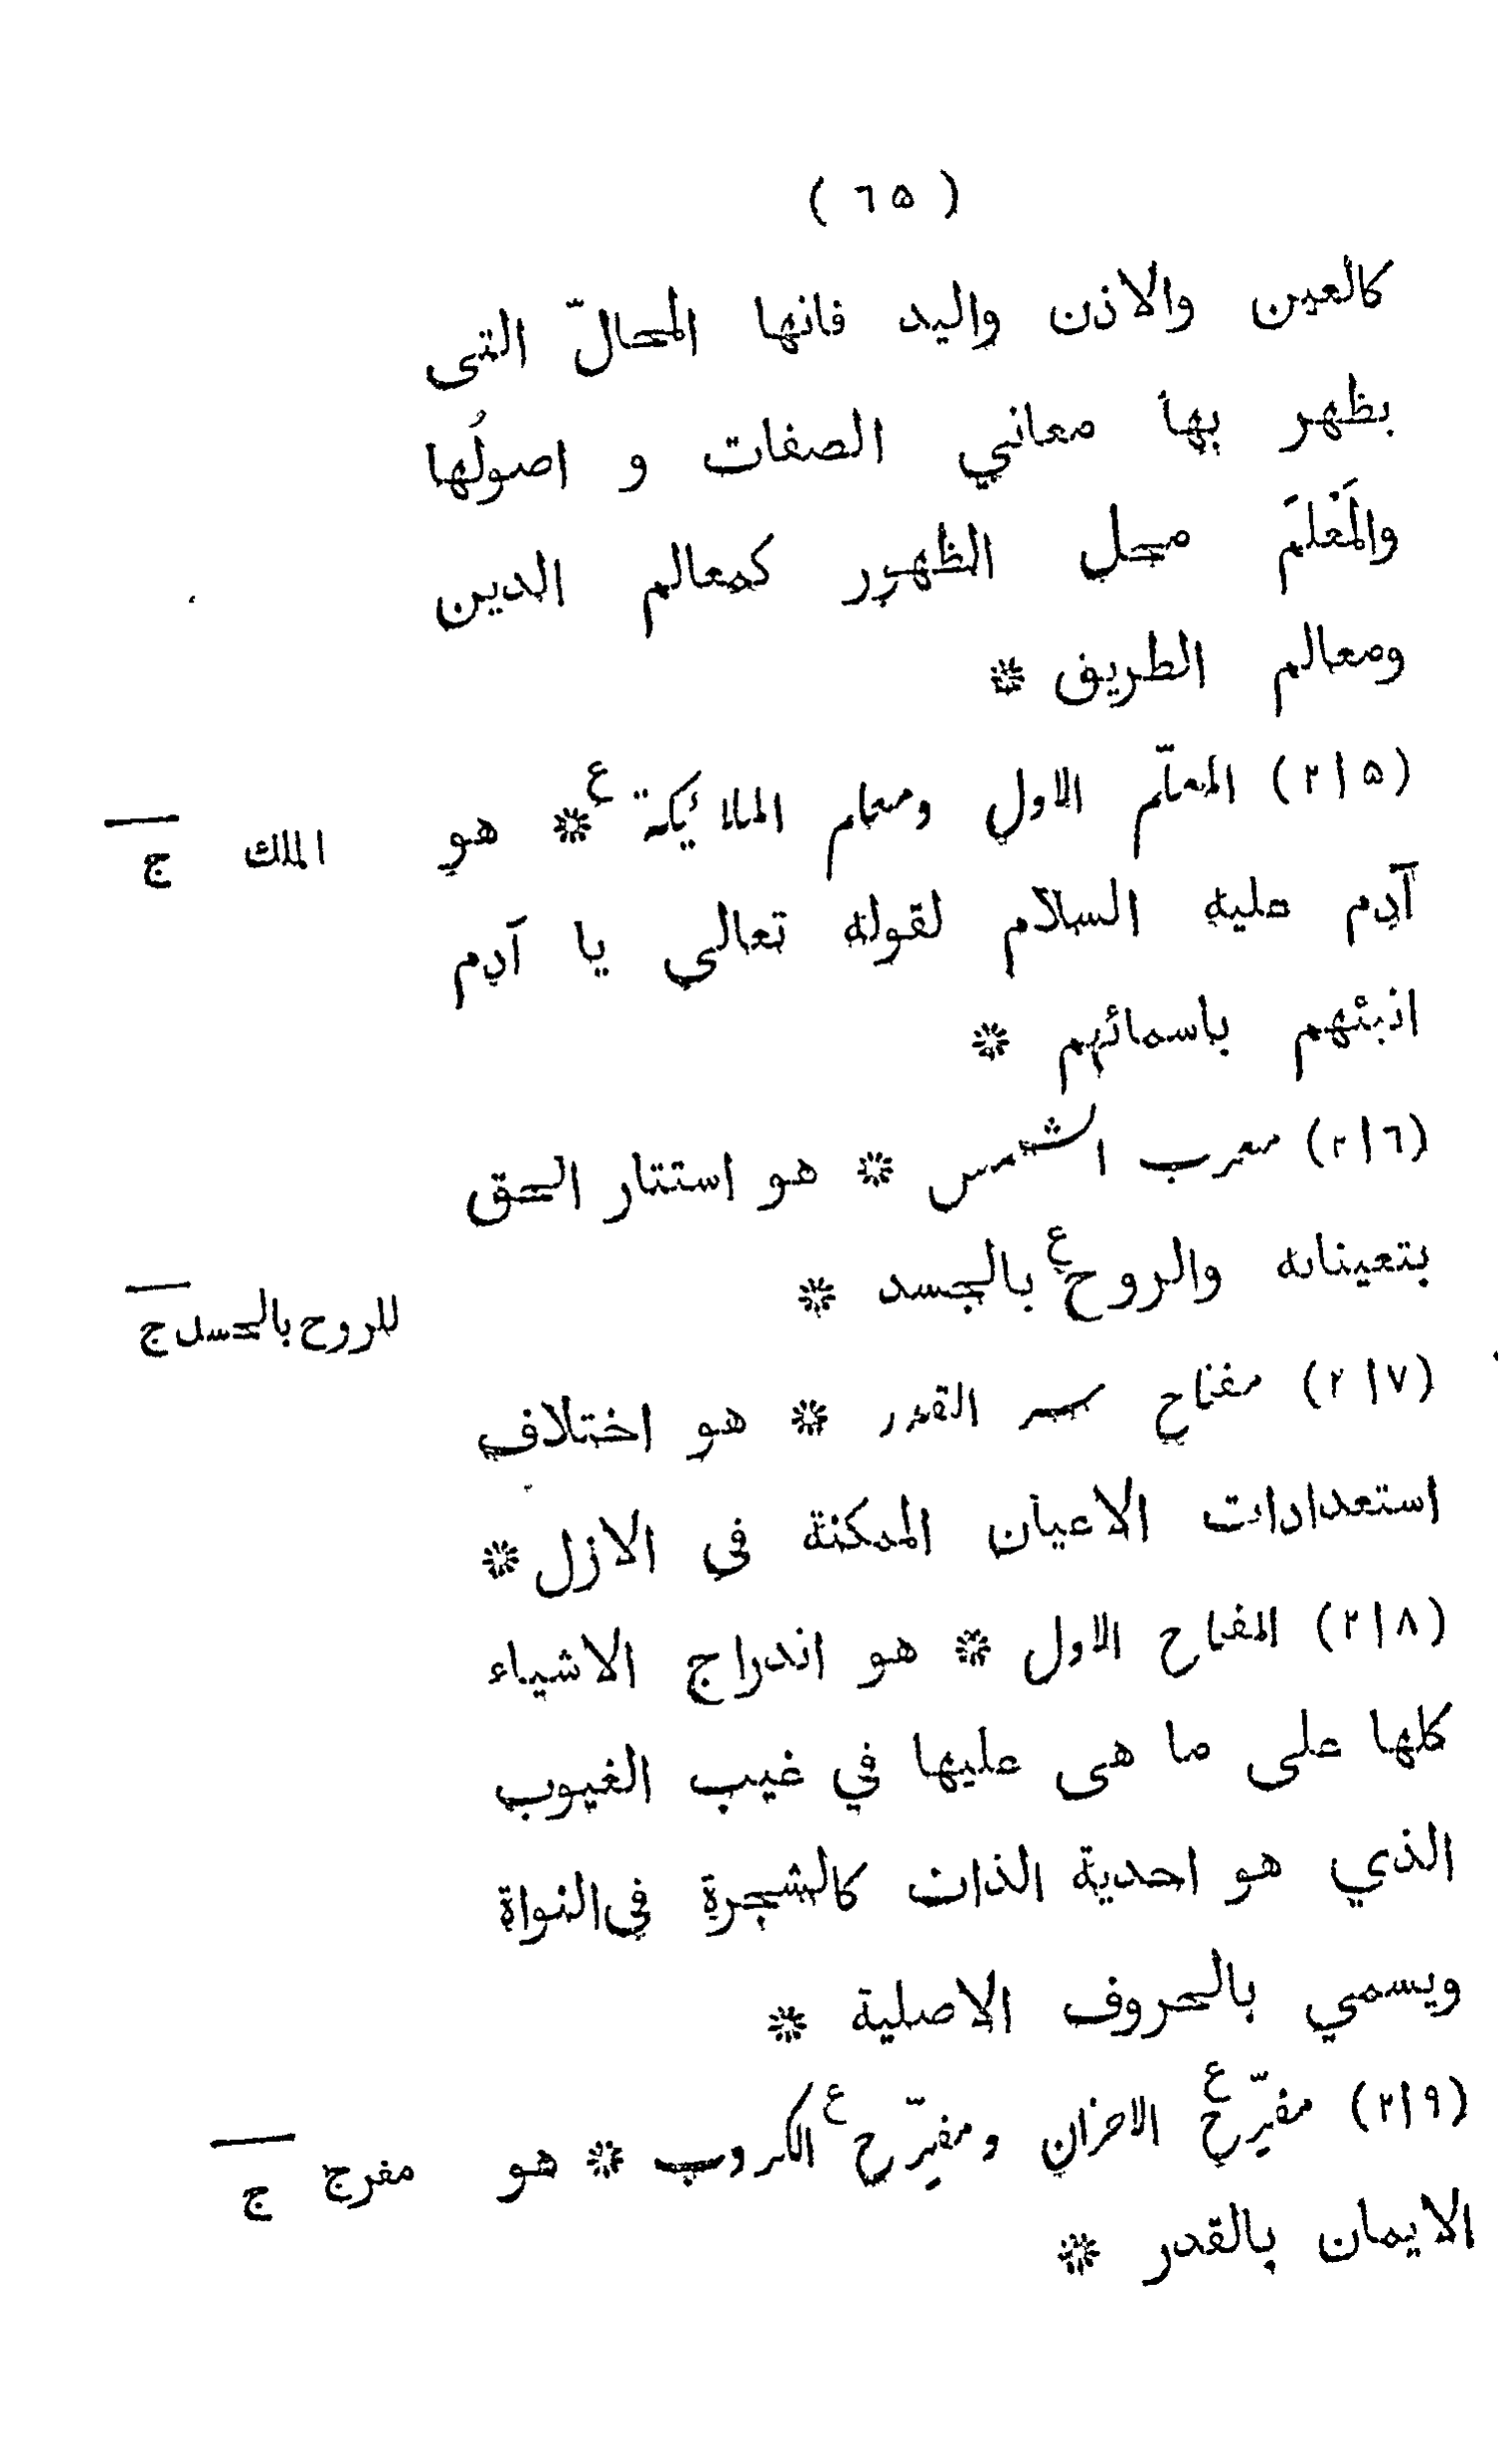 ( ٦٥ )
كالعين والاذن واليد فانها المحالّ التى
يظهر بها معاني الصفات و اصولُها
والمَعْلَم محل الظهور كمعالم الدين
ومعالم الطريق *
(٢١٥) المعلّم الاول ومعلم الملائكة ع * هو الملك ج
آدم عليه السلام لقوله تعالى يا آدم
انبئهم باسمائهم *
(٢١٦) مغرب الشمس * هو استتار الحق
بتعيناته والروح ع بالجسد * للروح بالجسد ج
(٢١٧) مفتاح سر القدر * هو اختلاف
استعدادات الاعيان الممكنة فى الازل *
(٢١٨) المفتاح الاول * هو اندراج الاشياء
كلها على ما هى عليها في غيب الغيوب
الذي هو احدية الذات كالشجرة فى النواة
ويسمي بالحروف الاصلية *
(٢١٩) مفرّح ع الاحزان ومفرّح ع الكروب * هو مفرج ج
الايمان بالقدر *